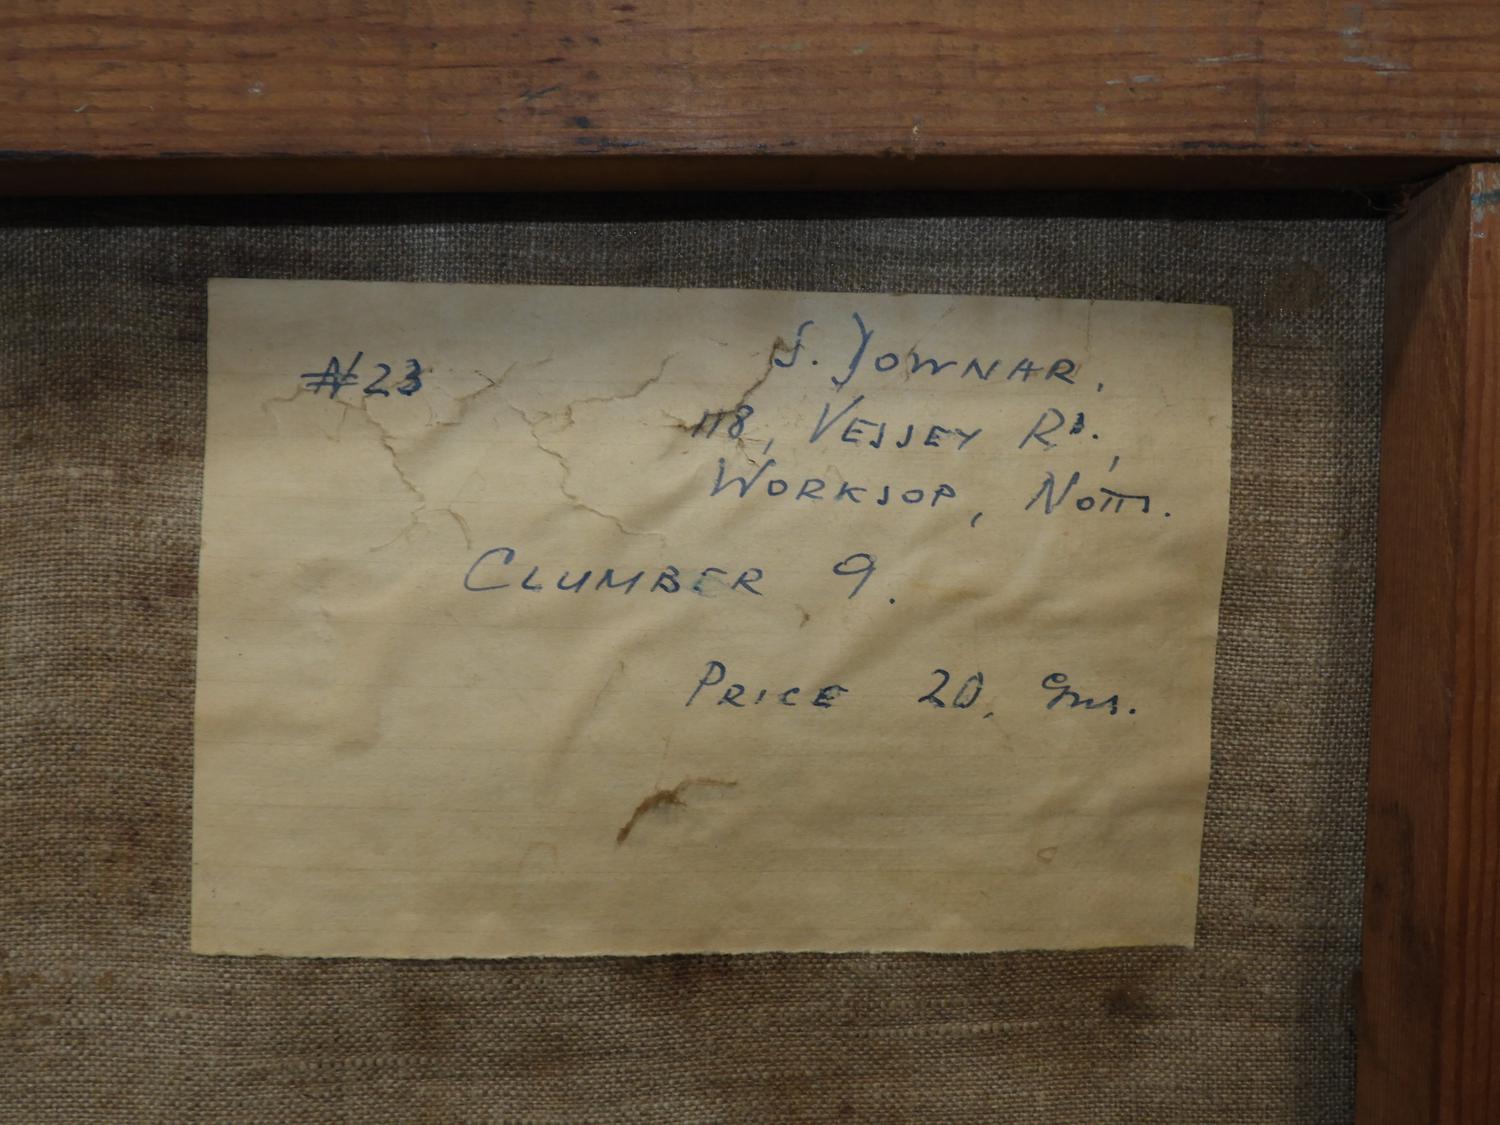 #23
S. Jownar,
118, Vessey Rd.,
Worksop, Notts.
Clumber 9.
Price 20. Gns.